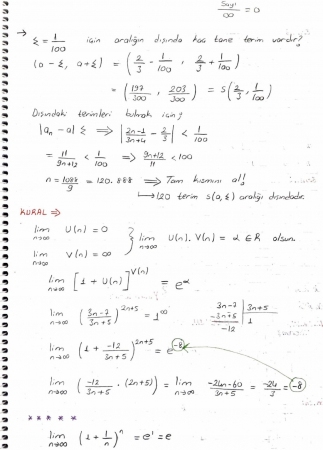 Sayı/∞ = 0
→ ξ = 1/100 için aralığın dışında kaç tane terim vardır?
(a - ξ, a + ξ) = (2/3 - 1/100, 2/3 + 1/100)
= (197/300, 203/300) = S(2/3, 1/100)
Dışındaki terimleri bulmak için;
|an - a| ξ ⟹ |2n-1/3n+4 - 2/3| < 1/100
= 11/9n+12 < 1/100 ⟹ 9n+12/11 < 100
n = 1088/9 = 120.888 ⟹ Tam kısmını al!
↳ 120 terim S(a, ξ) aralığı dışındadır.
KURAL ⟹
lim n→∞ U(n) = 0
lim n→∞ V(n) = ∞ } lim n→∞ U(n). V(n) = α ∈ R olsun.
lim n→∞ [1 + U(n)]^V(n) = e^α
lim n→∞ (3n-7/3n+5)^2n+5 = 1^∞
3n-7 | 3n+5
-3n+5 | 1
-12
lim n→∞ (1 + -12/3n+5)^2n+5 = e^-8
lim n→∞ (-12/3n+5 . (2n+5)) = lim n→∞ -24n-60/3n+5 = -24/3 = -8
* * * * *
lim n→∞ (1 + 1/n)^n = e^1 = e